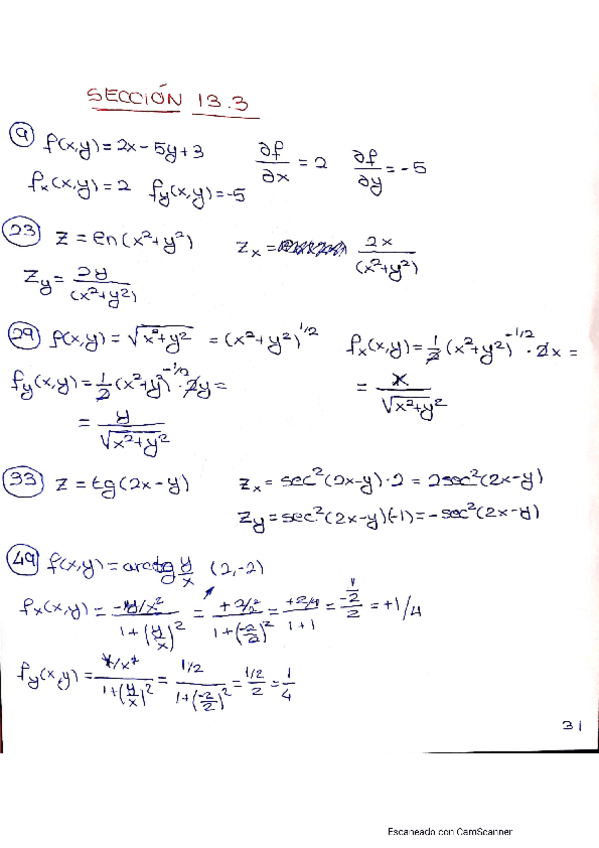 SECCIÓN 13.3
9 f(x,y) = 2x - 5y + 3 ∂f/∂x = 2 ∂f/∂y = -5
fx(x,y) = 2 fy(x,y) = -5
23 z = ln(x²+y²) zx = 2x/(x²+y²)
zy = 2y/(x²+y²)
29 f(x,y) = √x²+y² = (x²+y²)^1/2 fx(x,y) = 1/2 (x²+y²)^-1/2 · 2x =
fy(x,y) = 1/2 (x²+y²)^-1/2 · 2y = = x/√x²+y²
= y/√x²+y²
33 z = tg(2x-y) zx = sec²(2x-y)·2 = 2sec²(2x-y)
zy = sec²(2x-y)(-1) = -sec²(2x-y)
49 f(x,y) = arctg y/x (2,-2)
fx(x,y) = -y/x² / 1+(y/x)² = +2/2² / 1+(-2/2)² = +2/4 / 1+1 = = +1/4
fy(x,y) = / 1+(y/x)² = 1/2 / 1+(-2/2)² = 1/2 / 2 = 1/4
31
Escaneado con CamScanner